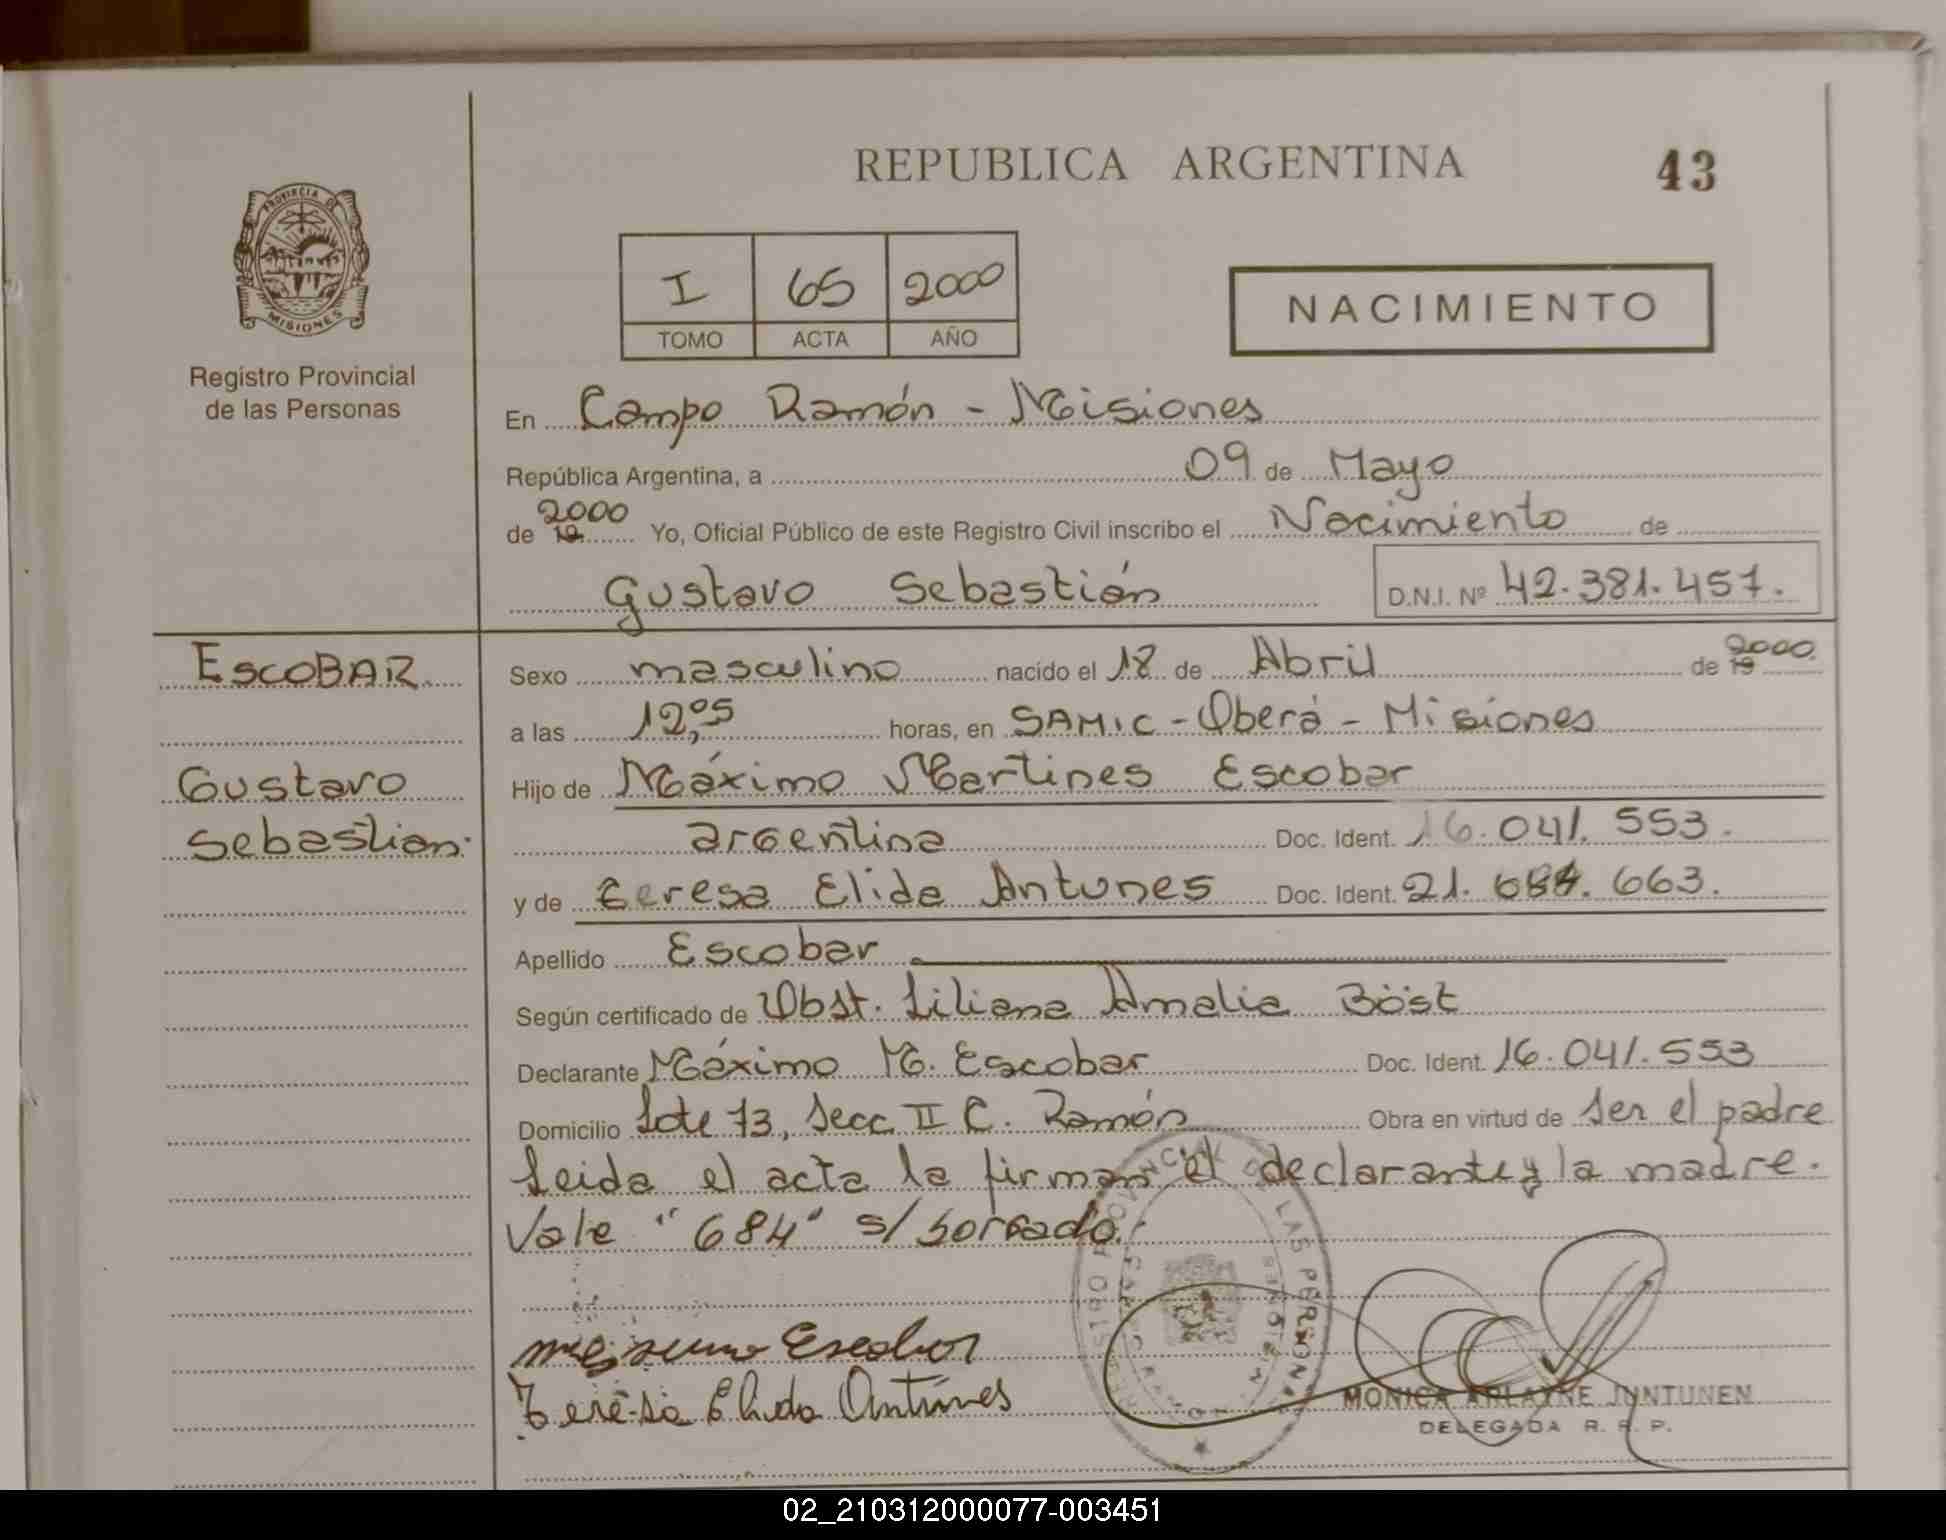 REPUBLICA ARGENTINA
43
PROVINCIA DE
MISIONES
Registro Provincial
de las Personas
I 65 2000
TOMO ACTA AÑO
NACIMIENTO
En Campo Ramón - Misiones
República Argentina, a 09 de Mayo
de 2000 19 Yo, Oficial Público de este Registro Civil inscribo el Nacimiento de
Gustavo Sebastián D.N.I. Nº 42.381.457.
ESCOBAR
Gustavo
Sebastian.
Sexo masculino nacido el 18 de Abril de 19 2000.
a las 12,05 horas, en SAMIC - Oberá - Misiones
Hijo de Máximo Martines Escobar
argentina Doc. Ident. 16.041.553.
y de Teresa Elida Antunes Doc. Ident. 21.684.663.
Apellido Escobar
Según certificado de Obst. Liliana Amalia Böst
Declarante Máximo M. Escobar Doc. Ident. 16.041.553
Domicilio Lote 73, Secc II C. Ramón Obra en virtud de ser el padre
Leida el acta la firman el declarante y la madre.
Vale "684" s/borrado.
REGISTRO PROVINCIAL DE LAS PERSONAS
CAMPO RAMON MISIONES
Escobar
Teresa Elida Antunes
MONICA ARLAYNE JUNTUNEN
DELEGADA R. R. P.
02_210312000077-003451